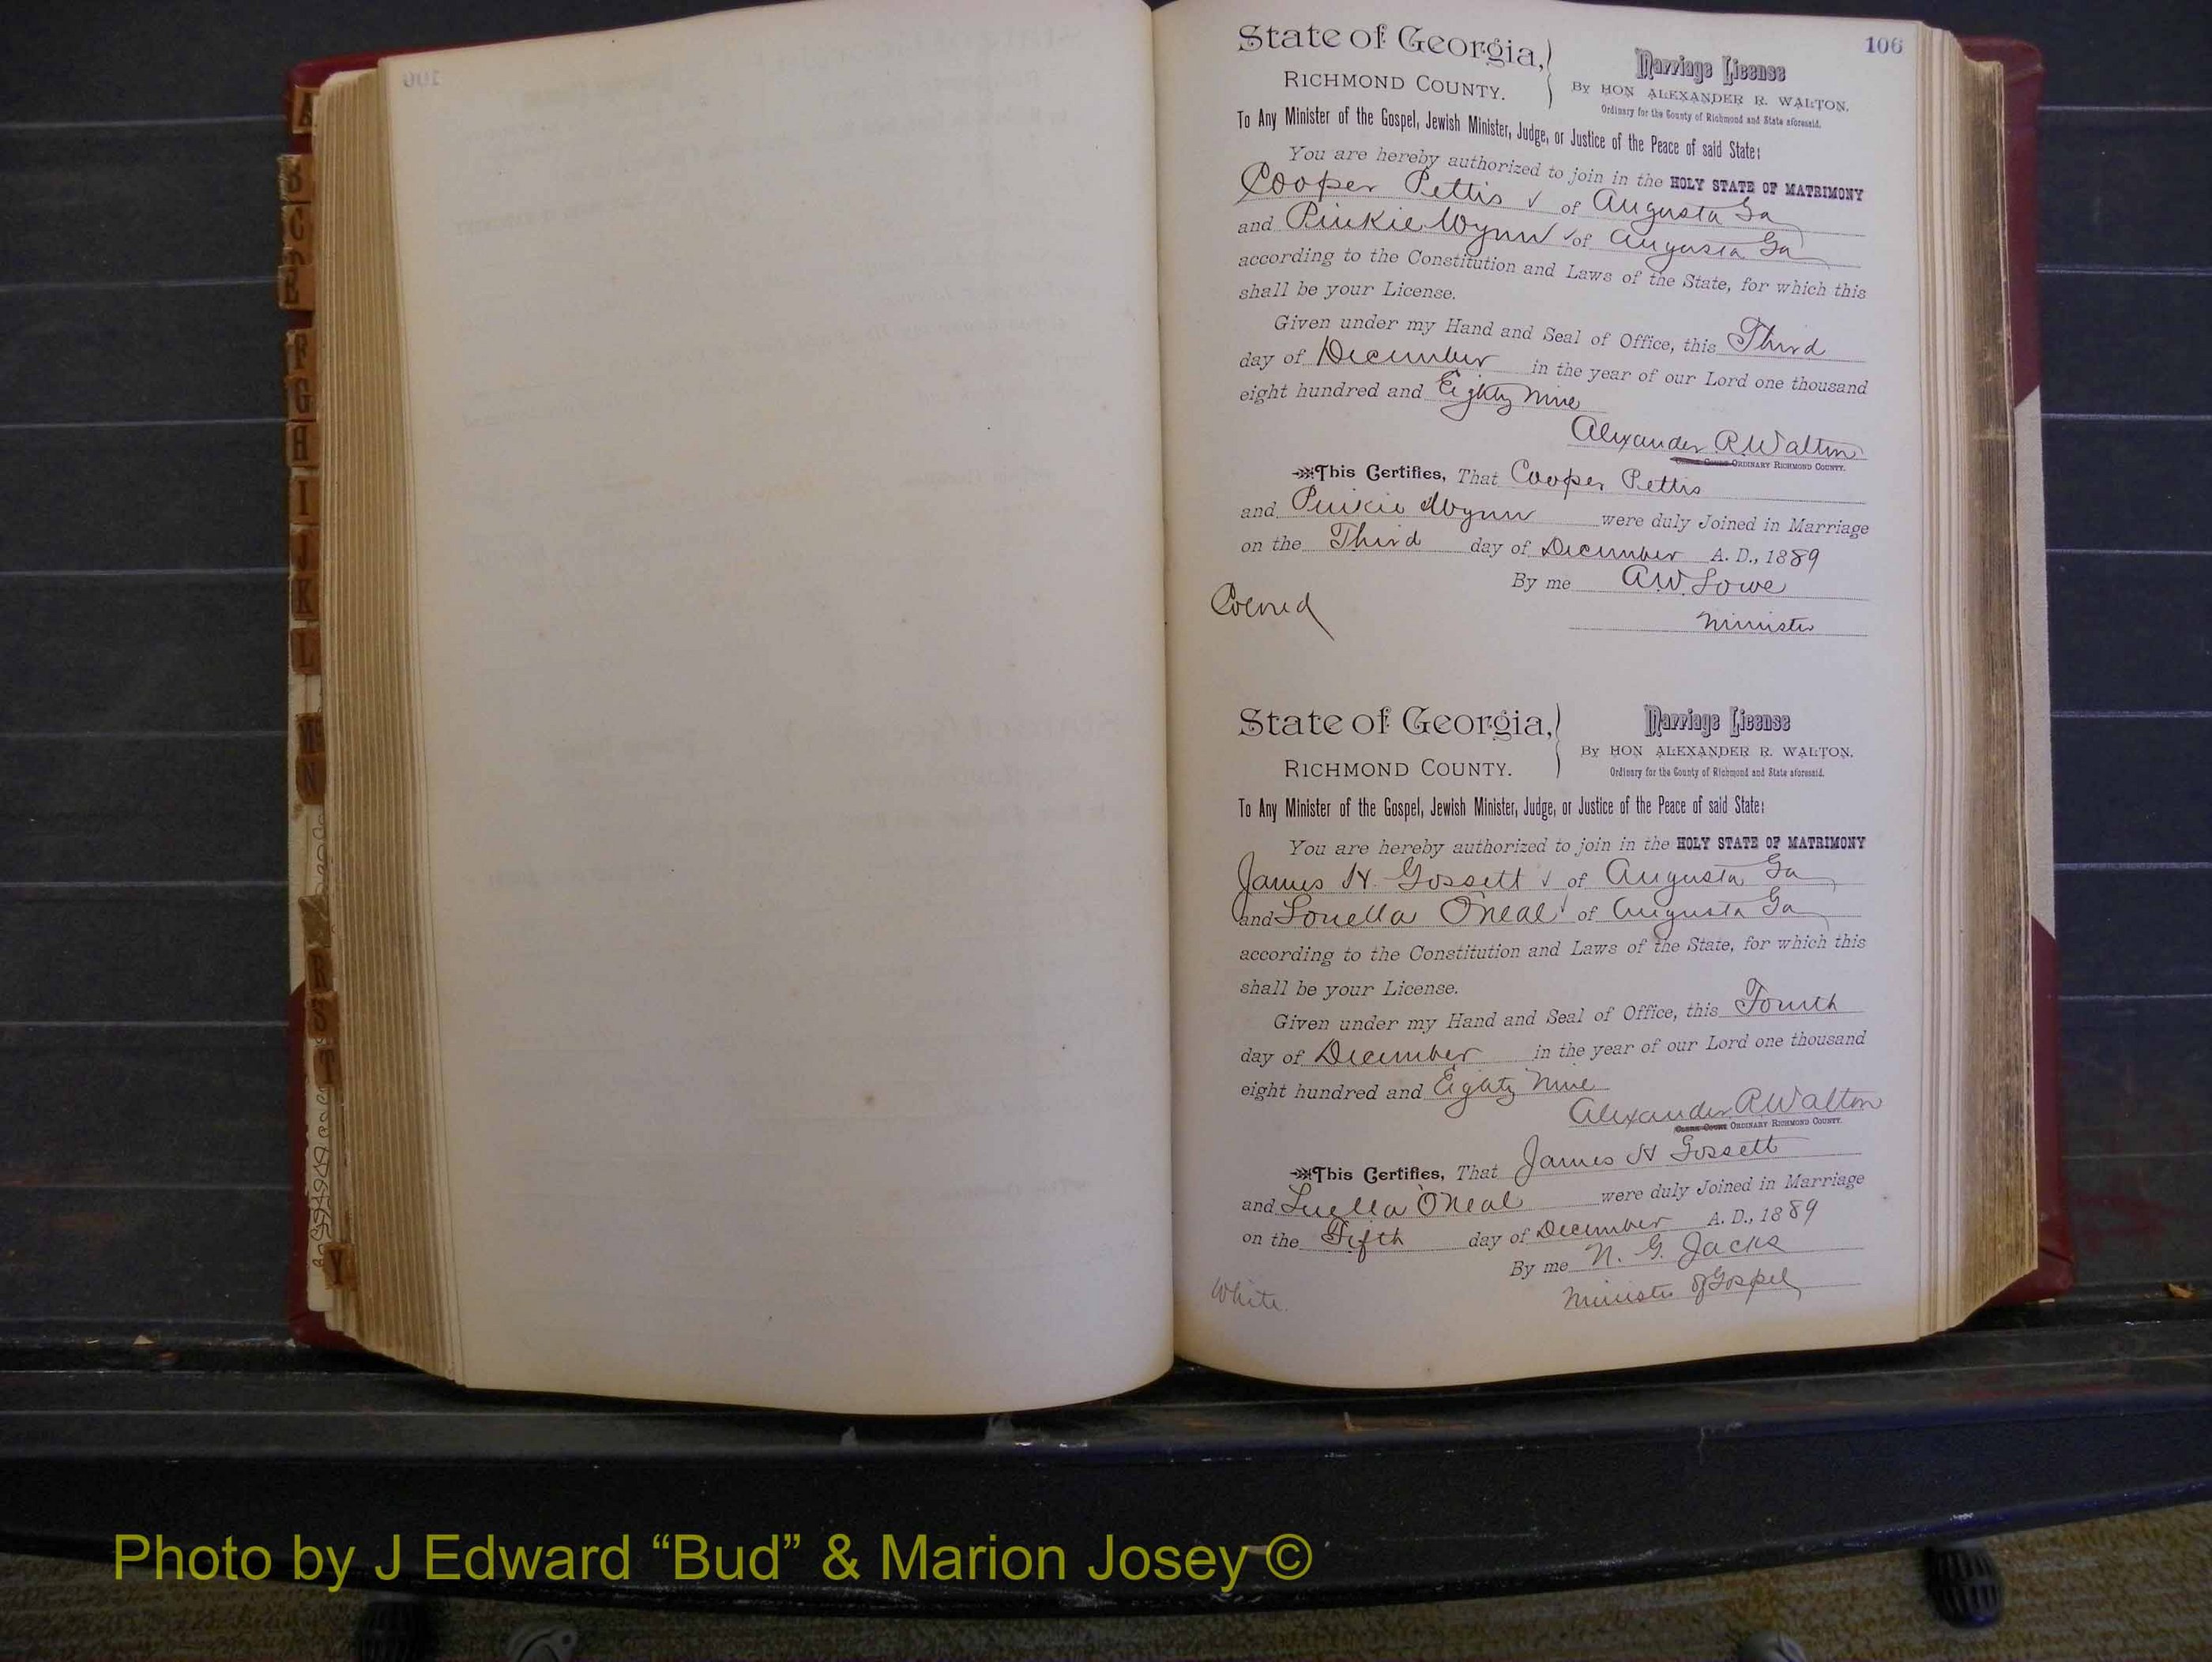 106
State of Georgia,
RICHMOND COUNTY.
Marriage License
By HON ALEXANDER R. WALTON.
Ordinary for the County of Richmond and State aforesaid.
To Any Minister of the Gospel, Jewish Minister, Judge, or Justice of the Peace of said State:
You are hereby authorized to join in the HOLY STATE OF MATRIMONY
Cooper Pettis ✓ of Augusta Ga
and Pinkie Wynn ✓ of Augusta Ga
according to the Constitution and Laws of the State, for which this
shall be your License.
Given under my Hand and Seal of Office, this Third
day of December in the year of our Lord one thousand
eight hundred and Eighty Nine
Alexander R. Walton
ORDINARY RICHMOND COUNTY.
This Certifies, That Cooper Pettis
and Pinkie Wynn were duly Joined in Marriage
on the Third day of December A. D., 1889
By me A.W. Lowe
Minister
Colored
State of Georgia,
RICHMOND COUNTY.
Marriage License
By HON ALEXANDER R. WALTON.
Ordinary for the County of Richmond and State aforesaid.
To Any Minister of the Gospel, Jewish Minister, Judge, or Justice of the Peace of said State:
You are hereby authorized to join in the HOLY STATE OF MATRIMONY
James H. Gossett ✓ of Augusta Ga
and Louella O'Neal ✓ of Augusta Ga
according to the Constitution and Laws of the State, for which this
shall be your License.
Given under my Hand and Seal of Office, this Fourth
day of December in the year of our Lord one thousand
eight hundred and Eighty Nine
Alexander R. Walton
Clerk Court ORDINARY RICHMOND COUNTY.
This Certifies, That James H Gossett
and Luella O'Neal were duly Joined in Marriage
on the Fifth day of December A. D., 1889
By me N. G. Jacks
Minister of Gospel
White.
A
B
C
E
F
G
H
I
J
K
L
Mc
N
R
S
T
Y
Photo by J Edward “Bud” & Marion Josey ©